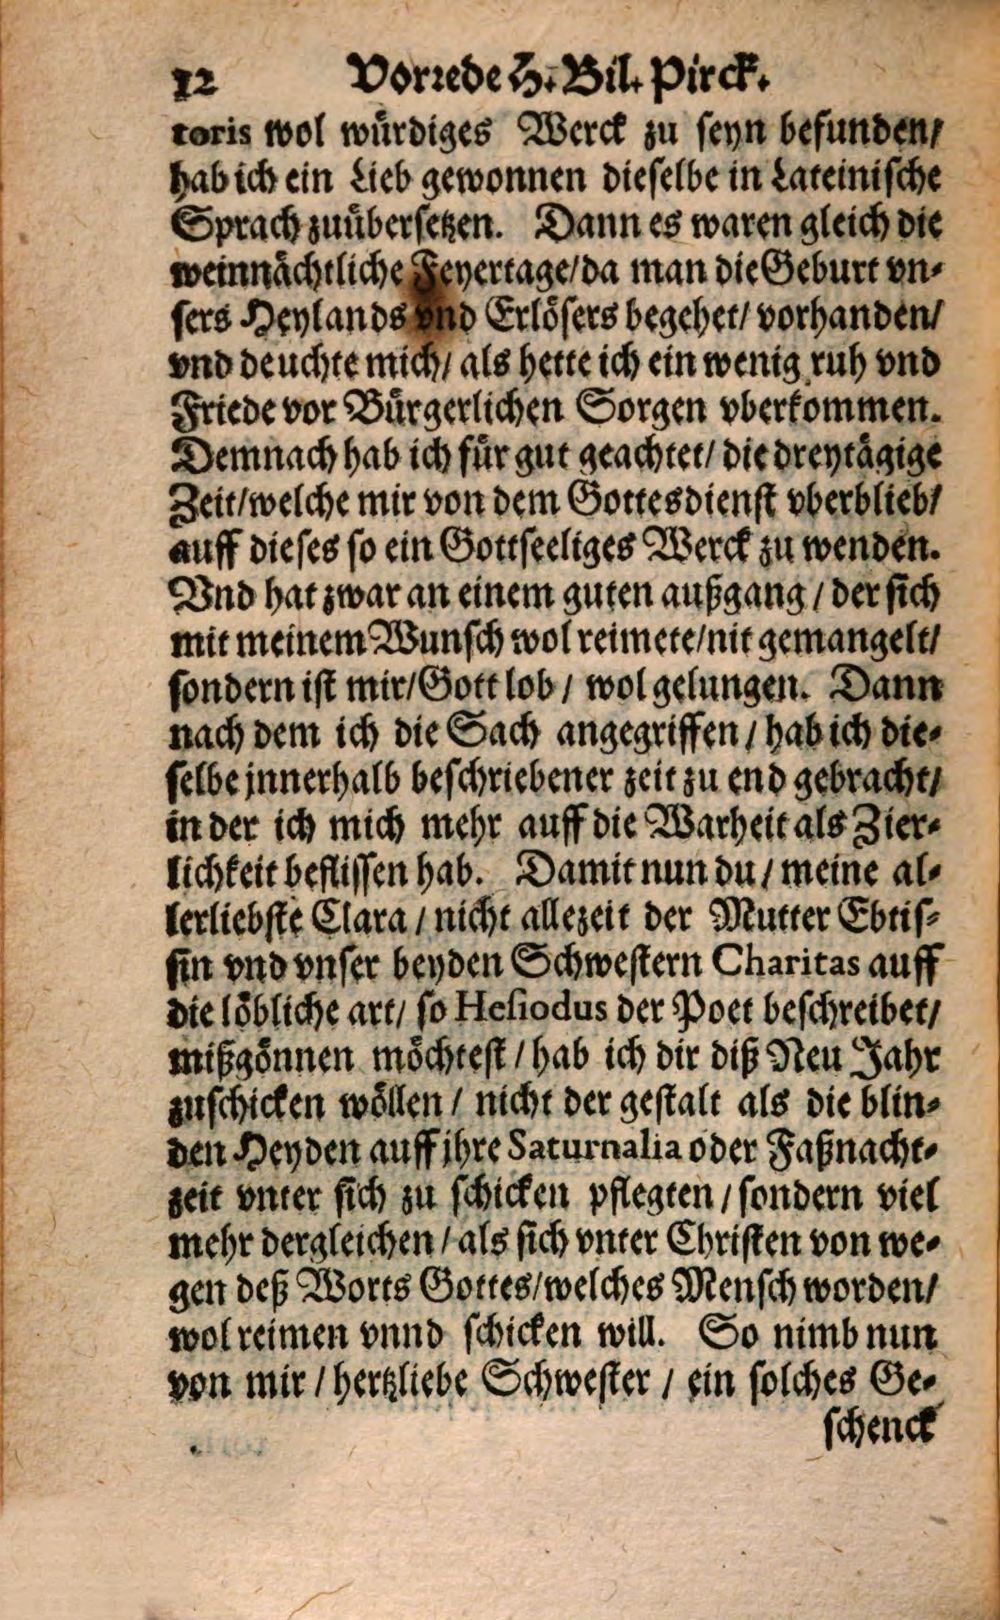 12 Vorrede H. Bil. Pirck.
toris wol würdiges Werck zu seyn befunden/
hab ich ein Lieb gewonnen dieselbe in Lateinische
Sprach zuübersetzen. Dann es waren gleich die
weinnächtliche Feyertage/da man die Geburt vn-
sers Heylands vnd Erlösers begehet/ vorhanden/
vnd deuchte mich/ als hette ich ein wenig ruh vnd
Friede vor Bürgerlichen Sorgen vberkommen.
Demnach hab ich für gut geachtet/ die dreytägige
Zeit/welche mir von dem Gottesdienst vberblieb/
auff dieses so ein Gottseeliges Werck zu wenden.
Vnd hat zwar an einem guten außgang / der sich
mit meinem Wunsch wol reimete/nit gemangelt/
sondern ist mir/Gott lob / wol gelungen. Dann
nach dem ich die Sach angegriffen / hab ich die-
selbe jnnerhalb beschriebener zeit zu end gebracht/
in der ich mich mehr auff die Warheit als Zier-
lichkeit beflissen hab. Damit nun du / meine al-
lerliebste Clara / nicht allezeit der Mutter Ebtis-
sin vnd vnser beyden Schwestern Charitas auff
die löbliche art/ so Hesiodus der Poet beschreibet/
mißgönnen möchtest / hab ich dir diß Neu Jahr
zuschicken wöllen / nicht der gestalt als die blin-
den Heyden auff jhre Saturnalia oder Faßnacht-
zeit vnter sich zu schicken pflegten / sondern viel
mehr dergleichen / als sich vnter Christen von we-
gen deß Worts Gottes/welches Mensch worden/
wol reimen vnnd schicken will. So nimb nun
von mir / hertzliebe Schwester / ein solches Ge-
schenck